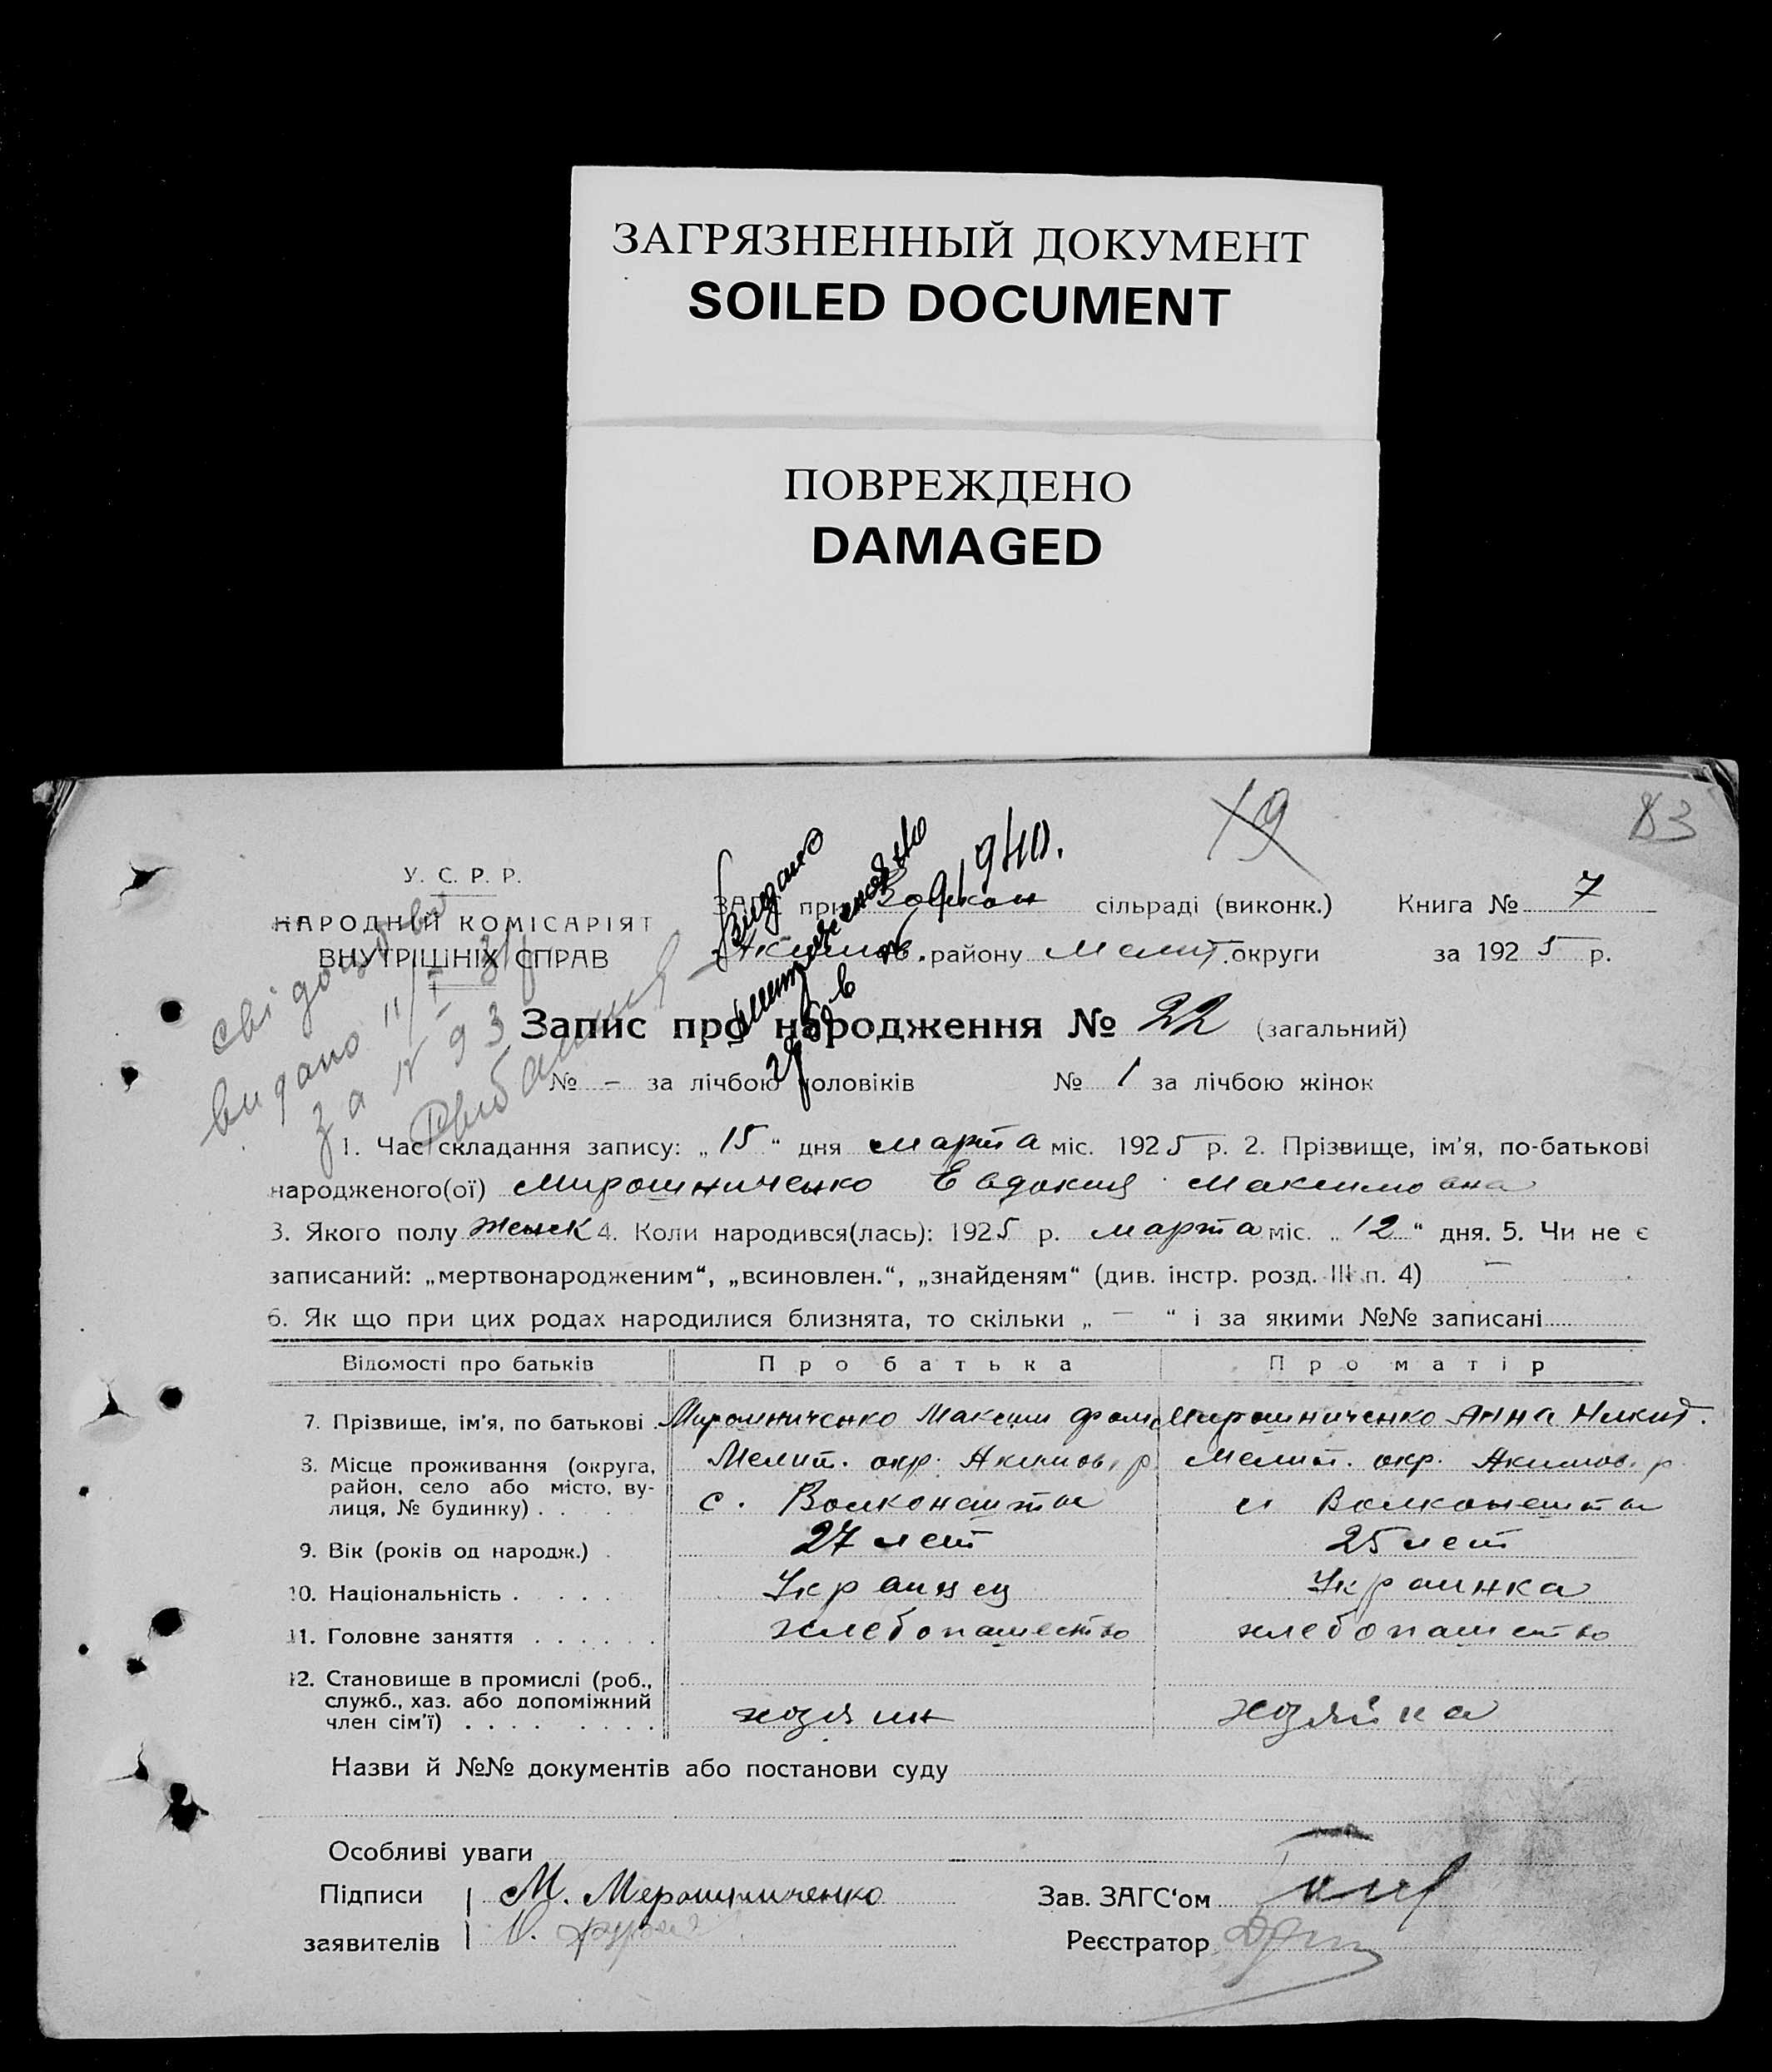 ЗАГРЯЗНЕННЫЙ ДОКУМЕНТ
SOILED DOCUMENT
ПОВРЕЖДЕНО
DAMAGED
19
83
У. С. Р. Р.
НАРОДНІЙ КОМІСАРІЯТ
ВНУТРІШНІХ СПРАВ
ЗАГС при Волкон сільраді (виконк.) Книга № 7
Акимов. району Мелит. округи за 1925 р.
видано
1940.
свідоцтво
видано 11/I
за № 93
Запис про народження № 22 (загальний)
№ – за лічбою чоловіків № 1 за лічбою жінок
1. Час складання запису: „15“ дня марта міс. 1925 р. 2. Прізвище, ім'я, по-батькові
народженого(ої) Мирошниченко Евдокия Максимовна
3. Якого полу женск 4. Коли народився(лась): 1925 р. марта міс. „12“ дня. 5. Чи не є
записаний: „мертвонародженим“, „всиновлен.“, „знайденям“ (див. інстр. розд. III п. 4) —
6. Як що при цих родах народилися близнята, то скільки „ — “ і за якими №№ записані
Відомості про батьків Про батька Про матір
7. Прізвище, ім'я, по батькові Мирошниченко Максим Фом Мирошниченко Анна Никит.
8. Місце проживання (округа, Мелит. окр. Акимов. р. Мелит. окр. Акимов. р.
район, село або місто, ву-
лиця, № будинку) с. Волконешты Волконешты
9. Вік (років од народж.) 27 лет 25 лет
10. Національність Украинец Украинка
11. Головне заняття хлебопашество хлебопашество
12. Становище в промислі (роб.,
служб., хаз. або допоміжний
член сім'ї) хозяин хозяйка
Назви й №№ документів або постанови суду
Особливі уваги
Підписи М. Мерошниченко Зав. ЗАГС'ом
заявителів Реєстратор